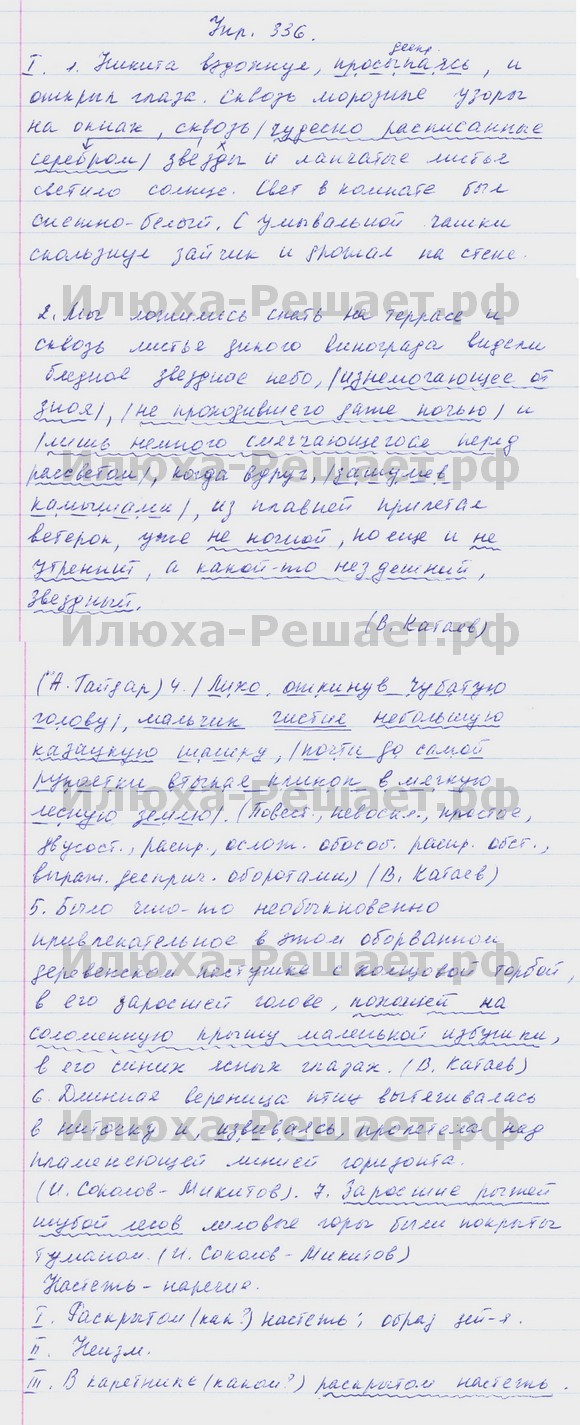 Упр. 336.
деепр.
I. 1. Никита вздохнул, просыпаясь, и
открыл глаза. Сквозь морозные узоры
на окнах, сквозь /чудесно расписанные
серебром/ звёзды и лапчатые листья
светило солнце. Свет в комнате был
снежно-белый. С умывальной чашки
скользнул зайчик и дрожал на стене.
Илюха-Решает.рф
2. Мы ложились спать на террасе и
сквозь листья дикого винограда видели
бледное звездное небо, /изнемогающее от
зноя/, /не проходившего даже ночью/ и
/лишь немного смягчающегося перед
рассветом/, когда вдруг, /зашумев
Илюха-Решает.рф
камышами/, из плавней прилетал
ветерок, уже не ночной, но еще и не
утренний, а какой-то нездешний,
звездный.
(В. Катаев)
Илюха-Решает.рф
(А. Гайдар) 4. /Лихо откинув чубатую
голову/, мальчик чистил небольшую
казацкую шашку, /почти до самой
рукоятки втыкая клинок в мягкую
Илюха-Решает.рф
лесную землю/. (Повест., невоскл., простое,
двусост., распр., ослож. обособ. распр. обст.,
выраж. дееприч. оборотами) (В. Катаев)
5. Было что-то необыкновенно
привлекательное в этом оборванном
Илюха-Решает.рф
деревенском пастушке с холщовой торбой,
в его заросшей голове, похожей на
соломенную крышу маленькой избушки,
в его синих ясных глазах. (В. Катаев)
6. Длинная вереница птиц вытягивалась
Илюха-Решает.рф
в ниточку и, извиваясь, пролетела над
пламенеющей линией горизонта.
(И. Соколов-Микитов). 7. Заросшие рыжей
шубой лесов лиловые горы были покрыты
туманом. (И. Соколов-Микитов)
Настежь - наречие.
I. Раскрытом (как?) настежь; образ дей-я.
II. Неизм.
III. В каретнике (каком?) раскрытом настежь.